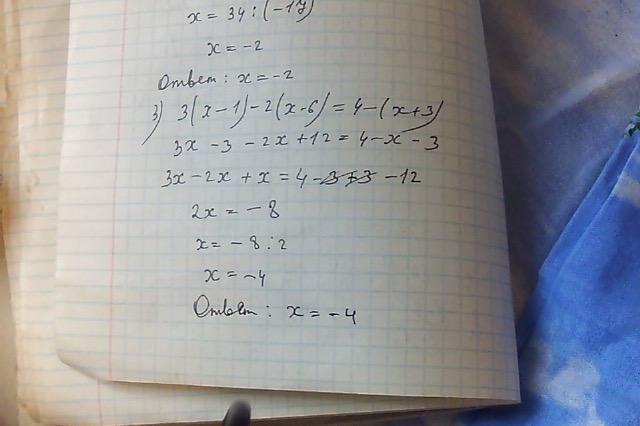 x = 34 : (-17)
x = -2
Ответ: x = -2
3) 3(x - 1) - 2(x - 6) = 4 - (x + 3)
3x - 3 - 2x + 12 = 4 - x - 3
3x - 2x + x = 4 - 3 + 3 - 12
2x = -8
x = -8 : 2
x = -4
Ответ: x = -4